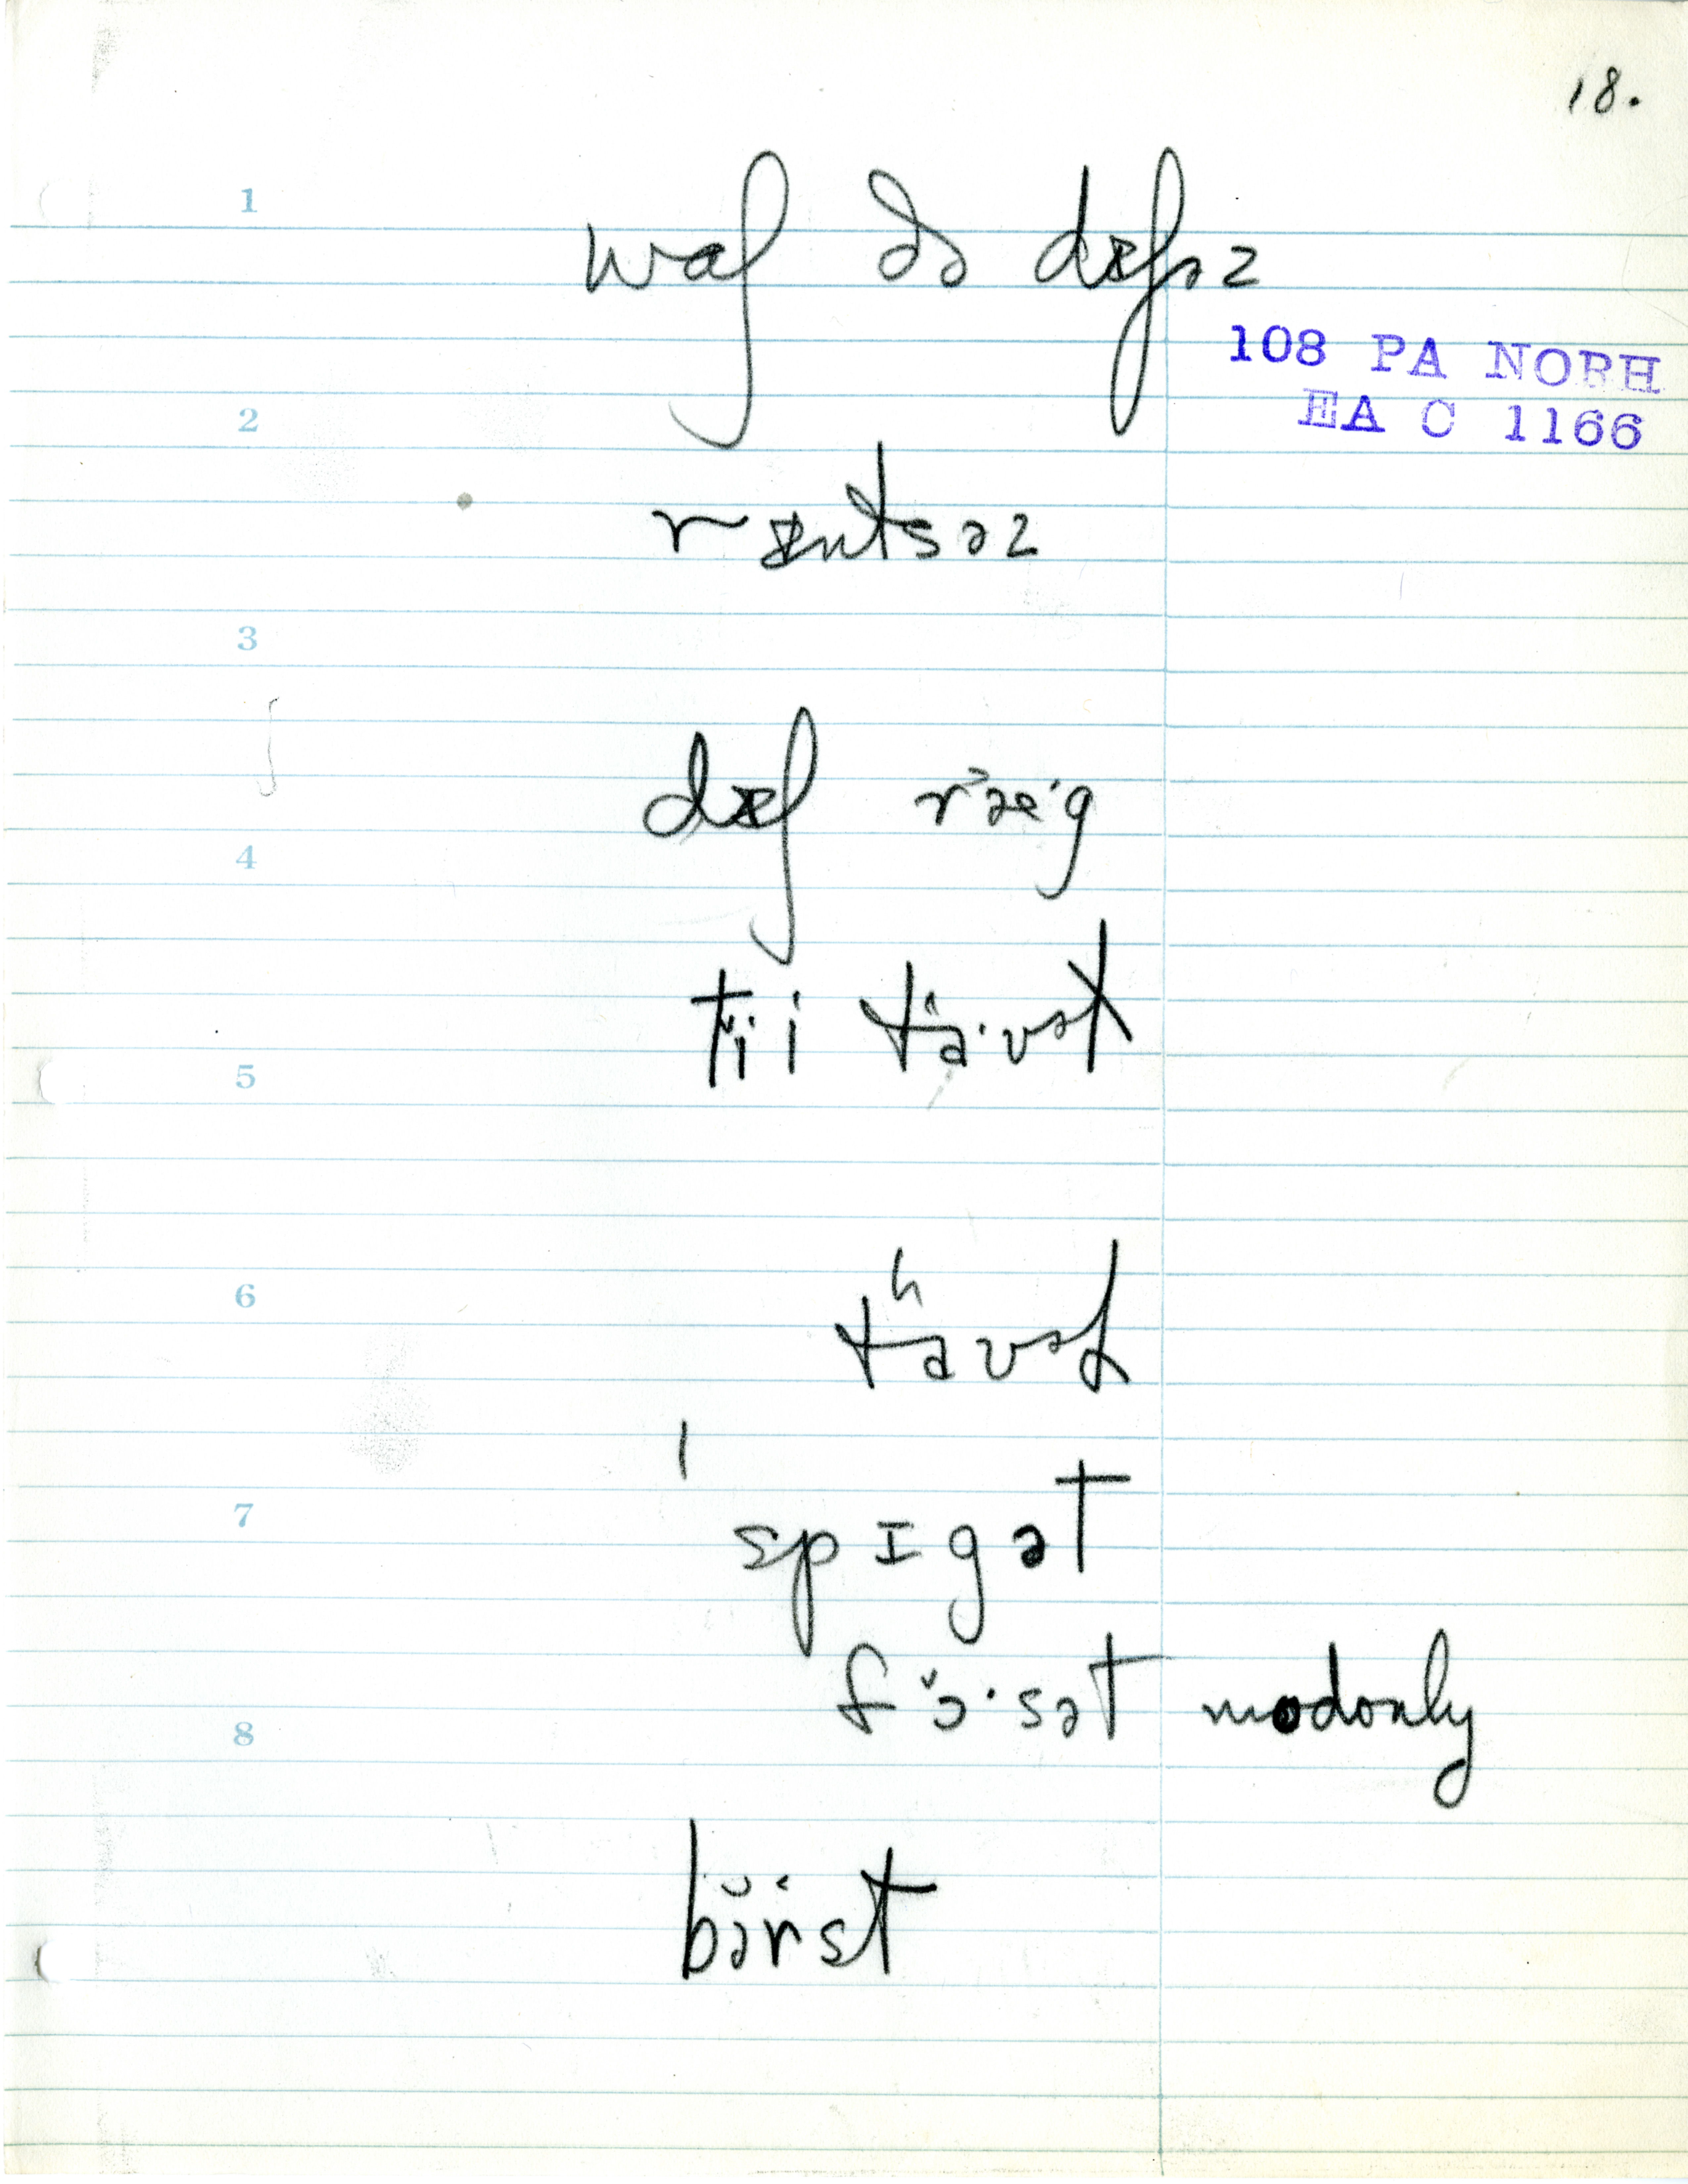 18.
1
waʃ ðə dɪʃəz
108 PA NORH
2
EA C 1166
rɪntsəz
3
dɪʃ ræ˃·g
4
tɪ̆i ta·vəl
5
6
h
tavəl
7
spɪgət
fɔ̆·sət modonly
8
bə̆r˂st